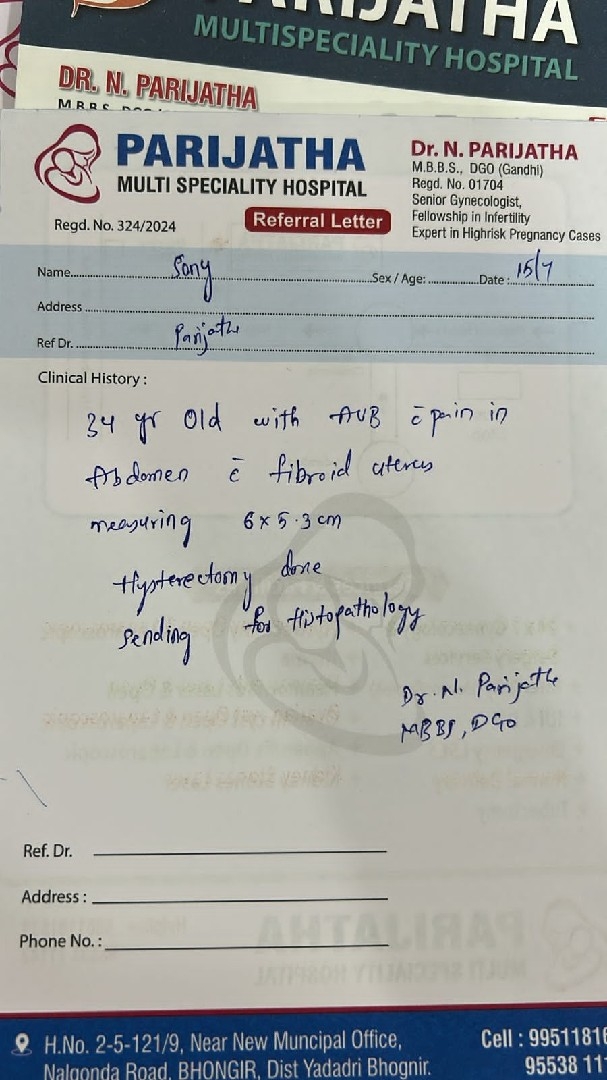 PARIJATHA
MULTISPECIALITY HOSPITAL
DR. N. PARIJATHA
PARIJATHA
MULTI SPECIALITY HOSPITAL
Regd. No. 324/2024
Referral Letter
Dr. N. PARIJATHA
M.B.B.S., DGO (Gandhi)
Regd. No. 01704
Senior Gynecologist,
Fellowship in Infertility
Expert in Highrisk Pregnancy Cases
Name Sony Sex / Age: Date : 15/7
Address
Ref Dr. Parijatha
Clinical History :
34 yr Old with AUB c̄ pain in
Abdomen c̄ fibroid uterus
measuring 6 x 5.3 cm
Hysterectomy done
Sending for Histopathology
Dr. N. Parijatha
MBBS, DGO
Ref. Dr.
Address :
Phone No. :
H.No. 2-5-121/9, Near New Muncipal Office,
Nalgonda Road, BHONGIR, Dist Yadadri Bhognir.
Cell : 99511816
95538 11